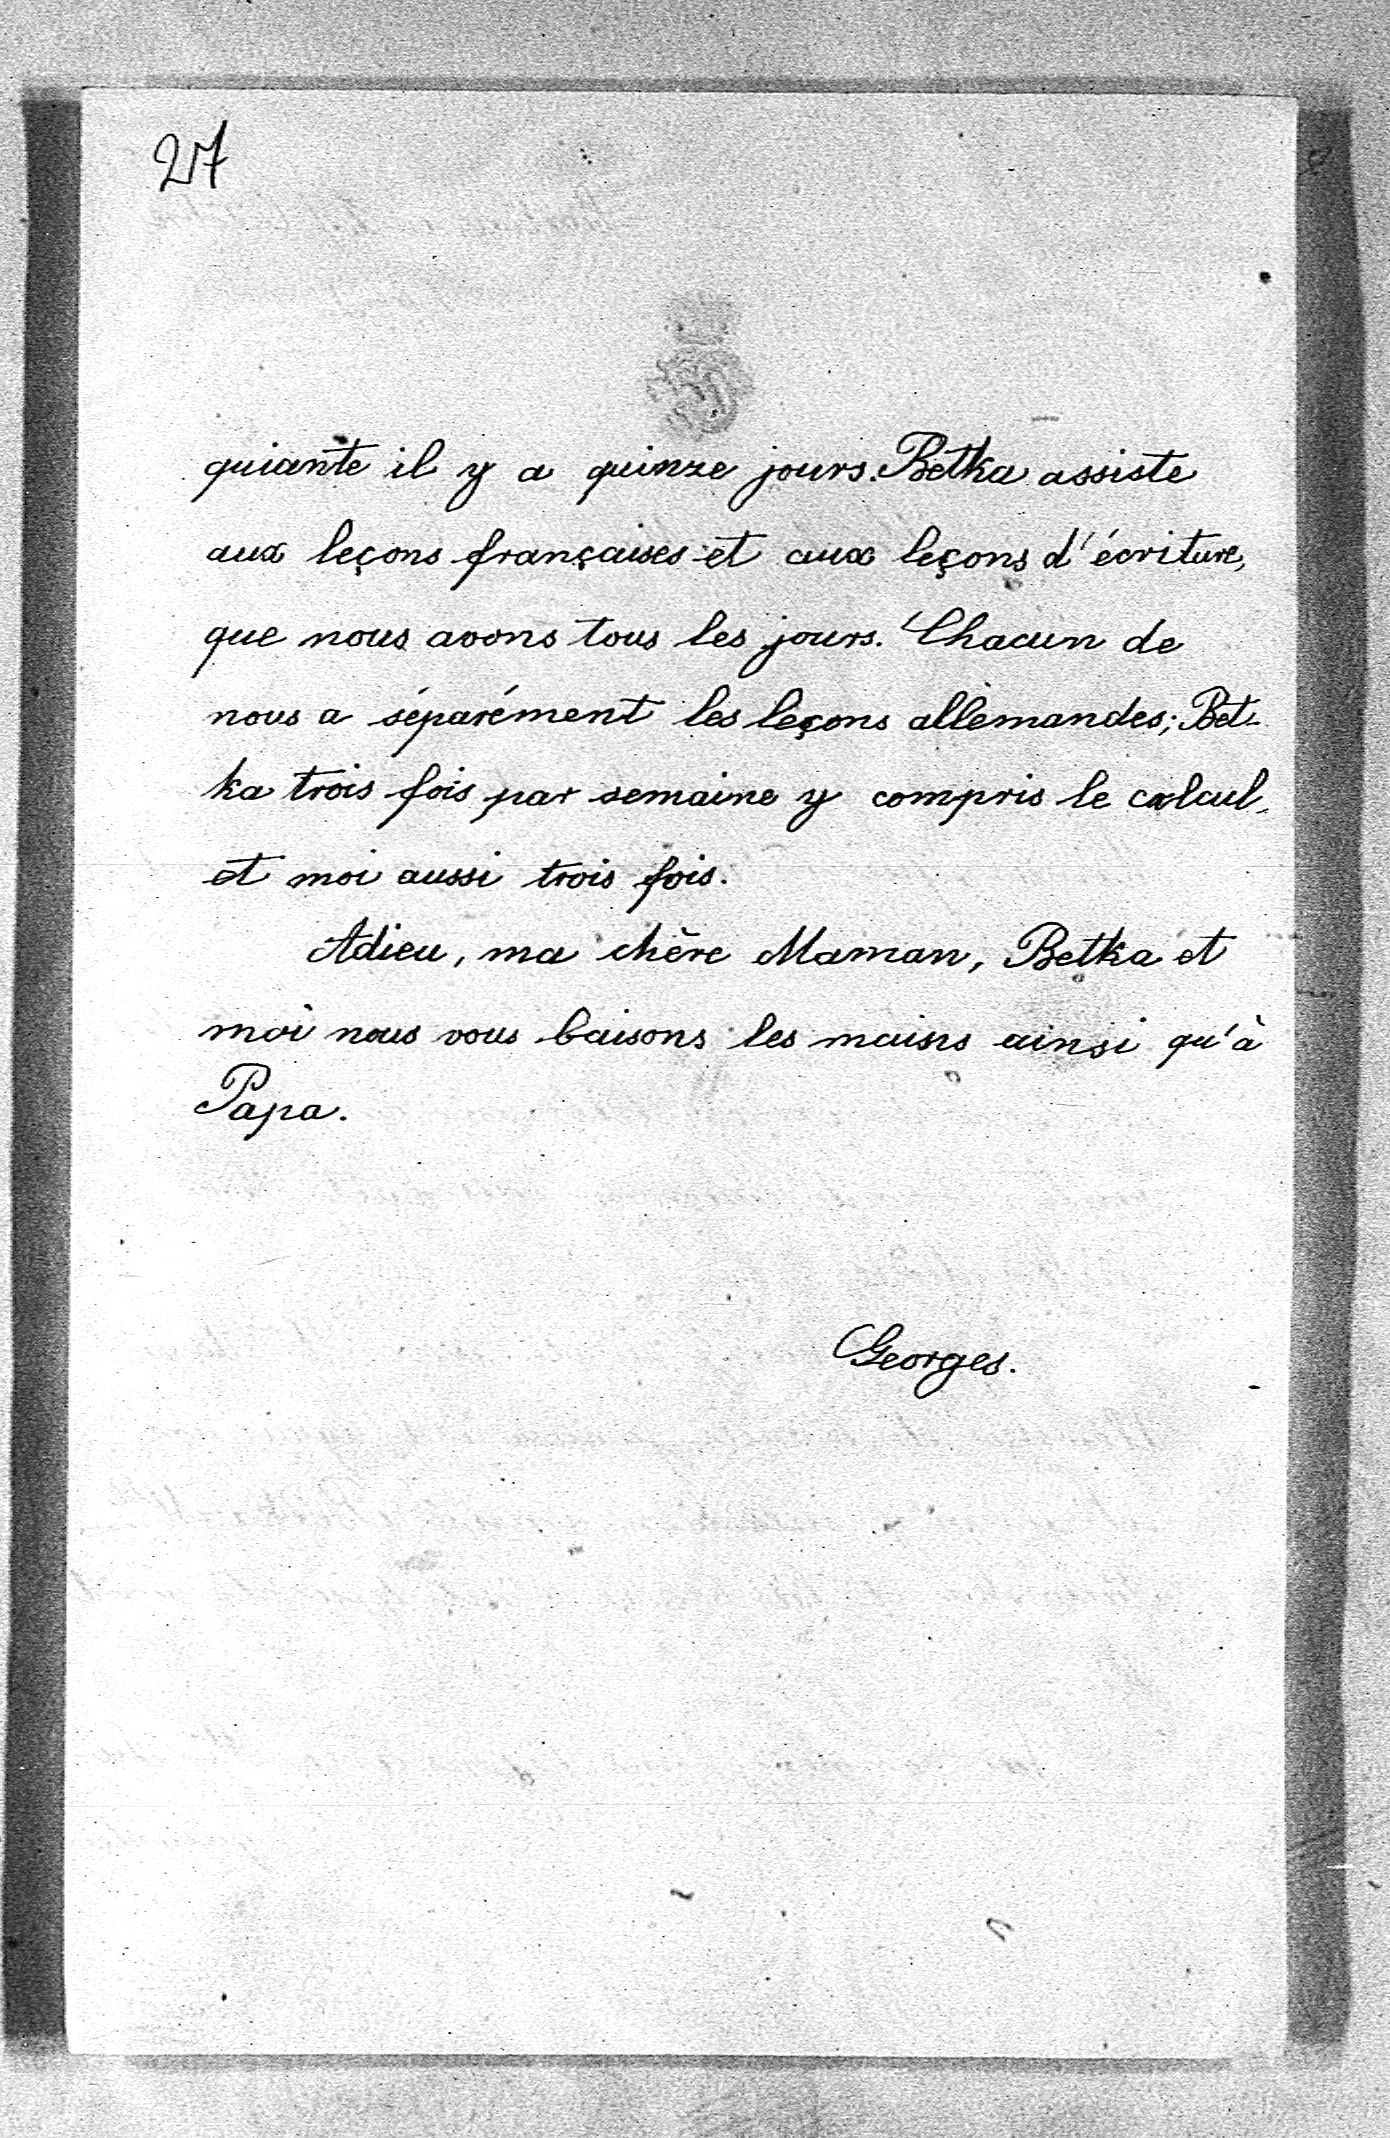 27
quiante il y a quinze jours. Betka assiste
aux leçons françaises et aux leçons d'écriture,
que nous avons tous les jours. Chacun de
nous a séparément les leçons allemandes; Bet-
ka trois fois par semaine y compris le calcul,
et moi aussi trois fois.
Adieu, ma chère Maman, Betka et
moi nous vous baisons les mains ainsi qu'à
Papa.
Georges.